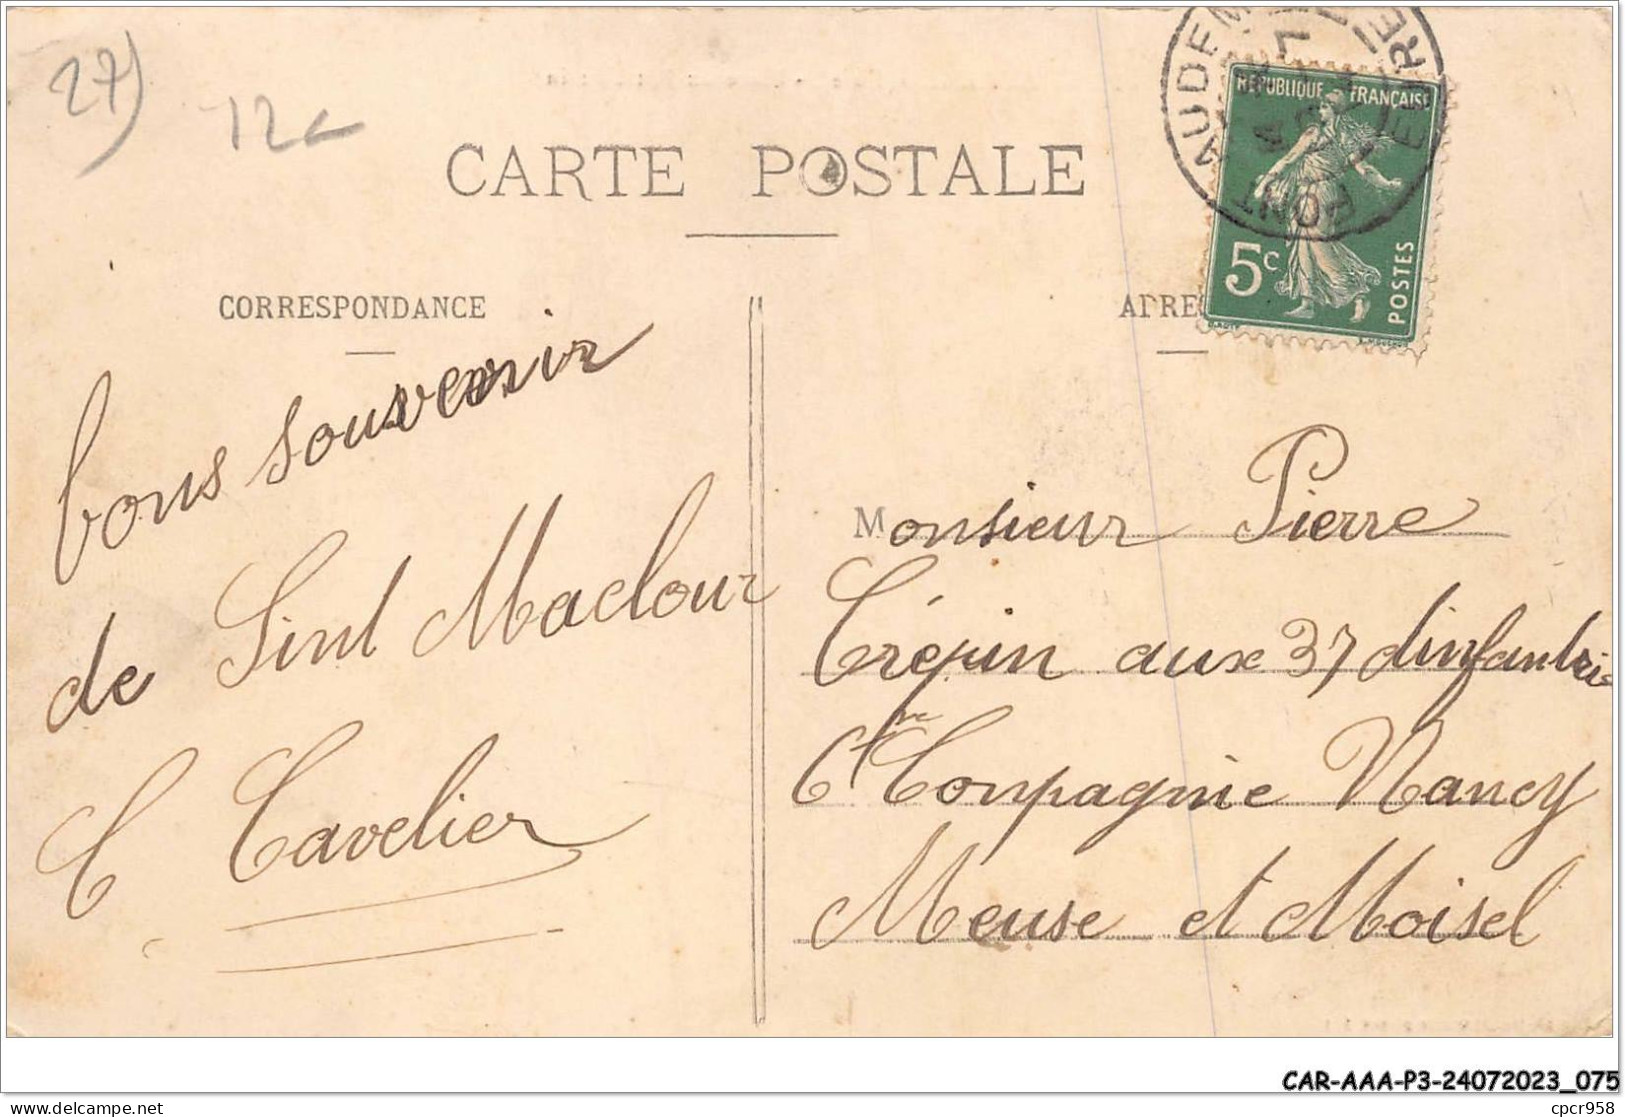 27)
12c
CARTE POSTALE
AUDEM
EURE
PONT
REPUBLIQUE FRANÇAISE
5c
POSTES
CORRESPONDANCE
ADRES
bons souvenir
de Sint Maclour
C Cavelier
Monsieur Pierre
Crépin aux 37 dinfantri
6 me Conpagnie Nancy
Meuse et Moisel
CAR-AAA-P3-24072023_075
cpcr958